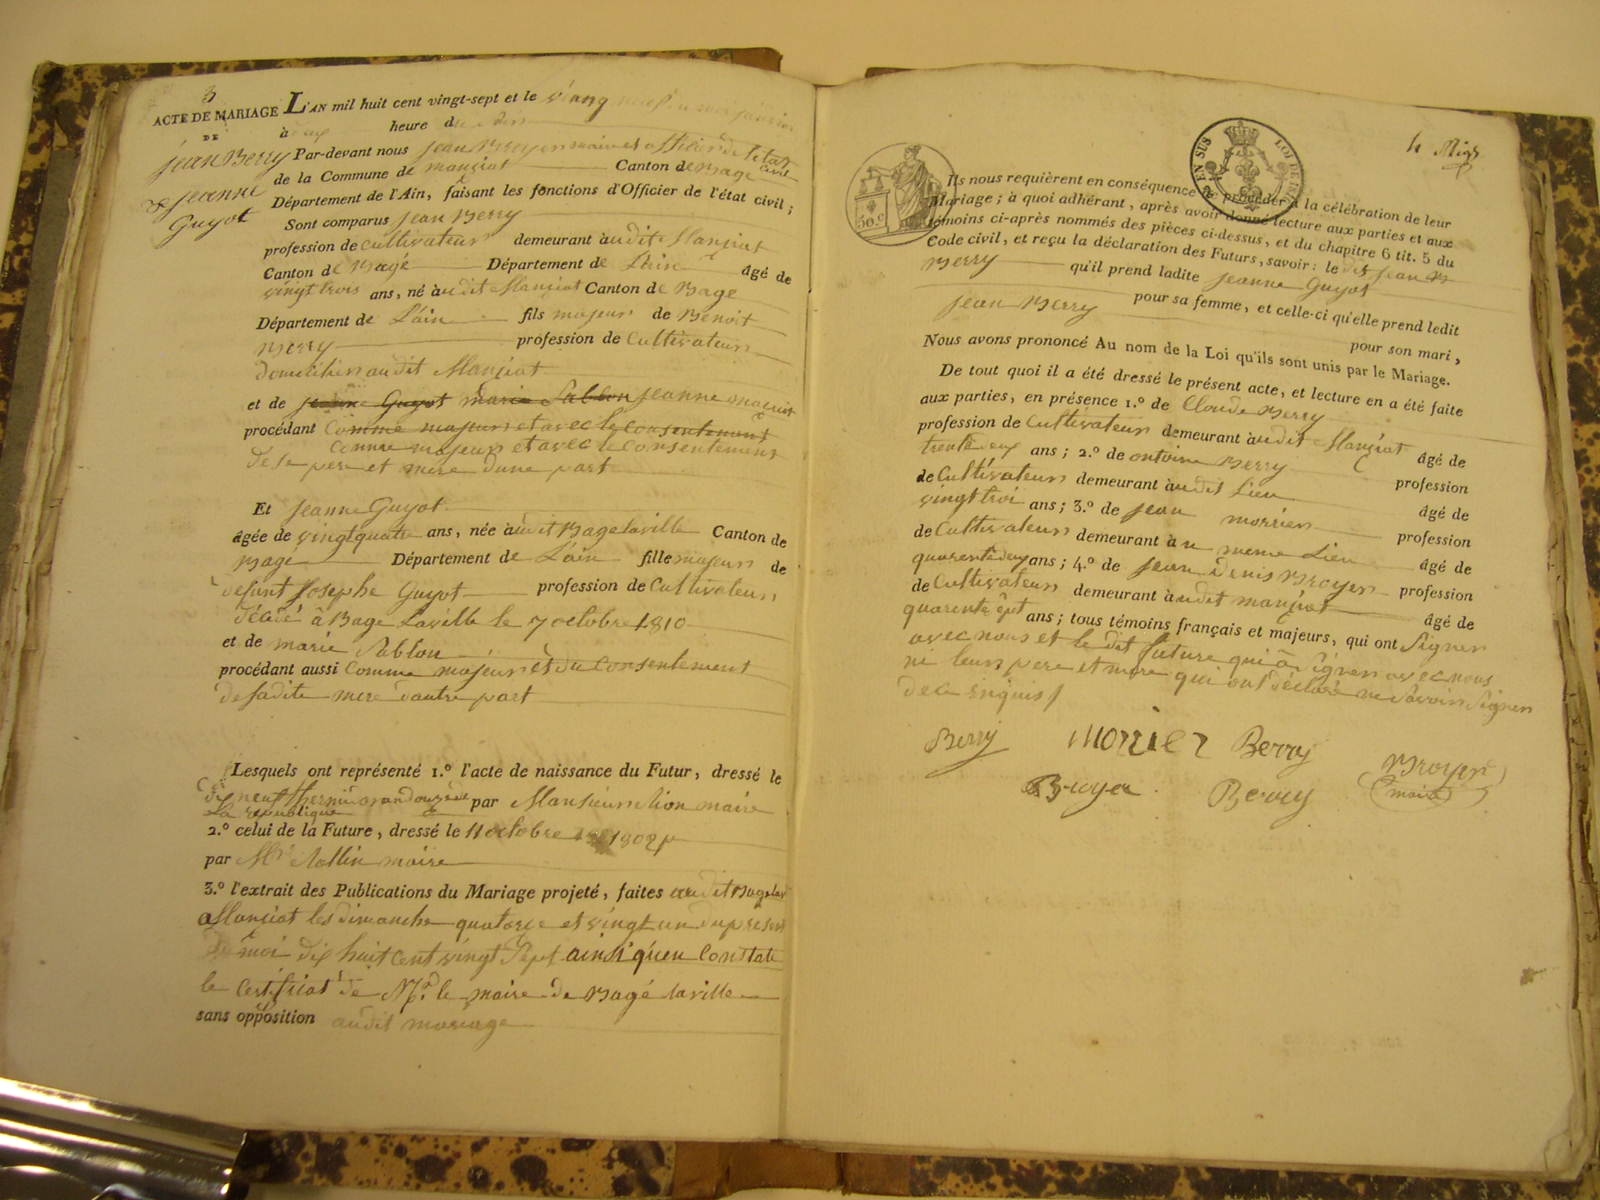 3
ACTE DE MARIAGE L'AN mil huit cent vingt-sept et le vingt neuf janvier
DE
à heure du
jean Berry Par-devant nous jean Broyer maire et officier de l'état civil
de la Commune de manziat Canton de Bagé
& jeanne Département de l'Ain, faisant les fonctions d'Officier de l'état civil ;
Guyot
Sont comparus jean Berry
profession de cultivateur demeurant audit Manziat
Canton de Bagé Département de L'ain âgé de
vingt trois ans, né audit Manziat Canton de Bagé
Département de L'ain fils majeur de Benoit
Berry profession de Cultivateur
domicilier audit Manziat
et de jeanne Guyot marie Sablon jeanne
procédant Comme majeur et avec le consentement
comme majeur et avec le consentement
de se pere et mere d'une part
Et jeanne Guyot
âgée de vingt quatre ans, née audit Bage laville Canton de
Bagé Département de L'ain fille majeur de
defunt Josephe Guyot profession de Cultivateur
décédé à Bage Laville le 7 octobre 1810
et de marie Sablon
procédant aussi Comme majeur et du consentement
de sadite mere d'autre part
Lesquels ont représenté 1.º l'acte de naissance du Futur, dressé le
dix neuf thermidor an douze de par Monsieur lion maire
La republique
2.º celui de la Future, dressé le 11 octobre 1802
par Mr Rollin maire
3.º l'extrait des Publications du Mariage projeté, faites audit Bage lav
a Manziat les dimanche quatorze et vingt un du present
moi dix huit cent vingt sept ainsi qu'en Constate
le Certificat de Mr. le maire de Bagé laville
sans opposition audit mariage
EN SUS
LOI DE
50.c
Ils nous requièrent en conséquence de procéder à la célébration de leur
Mariage ; à quoi adhérant, après avoir donné lecture aux parties et aux
témoins ci-après nommés des pièces ci-dessus, et du chapitre 6 tit. 5 du
Code civil, et reçu la déclaration des Futurs, savoir : le dit jean B
Berry qu'il prend ladite jeanne Guyot
pour sa femme, et celle-ci qu'elle prend ledit
jean Berry pour son mari,
Nous avons prononcé Au nom de la Loi qu'ils sont unis par le Mariage.
De tout quoi il a été dressé le présent acte, et lecture en a été faite
aux parties, en présence 1.º de Cloude Berry
profession de Cultivateur demeurant audit Manziat âgé de
trente deux ans ; 2.º de ontoine Berry profession
de Cultivateur demeurant audit Lieu âgé de
vingt troi ans ; 3.º de jean morrier profession
de Cultivateur demeurant au meme Lieu âgé de
quarente deux ans ; 4.º de jean denis Broyer profession
de Cultivateur demeurant audit manziat âgé de
quarente sept ans ; tous témoins français et majeurs, qui ont Signer
avec nous et le dit future qui a signer avec nous
ni leur pere et mere qui ont déclaré ne Savoir Signer
de ce enquis
Berry Morrier Berry Broyer
Broyer Berry maire